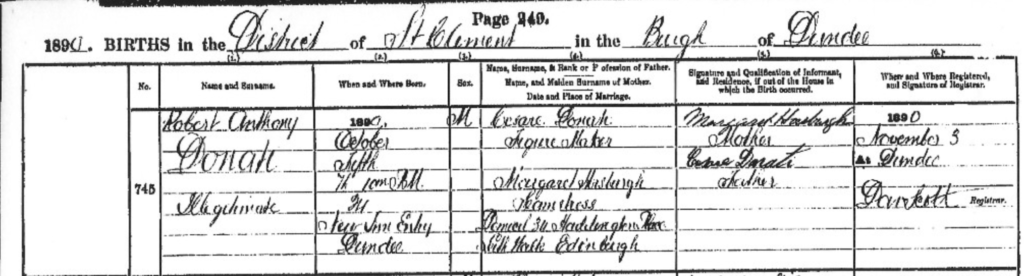 Page 249.
1890. BIRTHS in the District of St Clement in the Burgh of Dundee
(1.) (2.) (3.) (4.) (5.) (6.)
No. Name and Surname. When and Where Born. Sex. Name, Surname, & Rank or Profession of Father. Name, and Maiden Surname of Mother. Date and Place of Marriage. Signature and Qualification of Informant, and Residence, if out of the House in which the Birth occurred. When and Where Registered, and Signature of Registrar.
745
Robert Anthony
Donah
Illegitimate
1890,
October
Fifth
7h 10m AM
New Inn Entry
Dundee
M
Cesare Donah
Figure Maker
Margaret
Domicil 34 Haddington Place
Leith Walk Edinburgh
Margaret
Mother
Donati
Father
1890
November 3
At Dundee
Registrar.